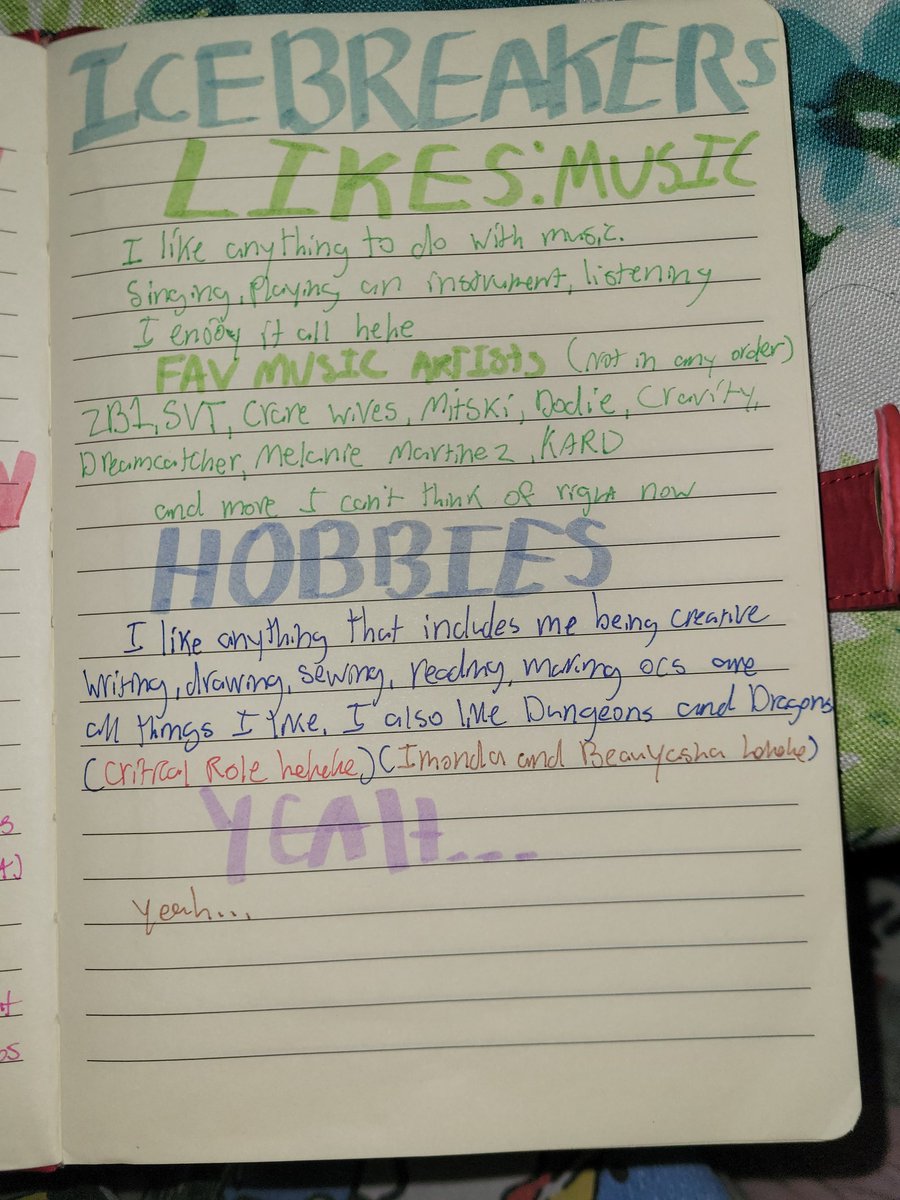 ICEBREAKERS
LIKES: MUSIC
I like anything to do with music.
Singing, Playing an instrument, listening
I enjoy it all hehe
FAV MUSIC ARTISTS (not in any order)
ZB1, SVT, Crane wives, Mitski, Dodie, Cravity,
Dreamcatcher, Melanie Martinez, KARD
and more I can't think of right now
HOBBIES
I like anything that includes me being creative
Writing, drawing, sewing, reading, making ocs are
all things I like. I also like Dungeons and Dragons
(Critical Role hehehe)(Imonda and Beauyasha hehehe)
YEAH...
yeah...